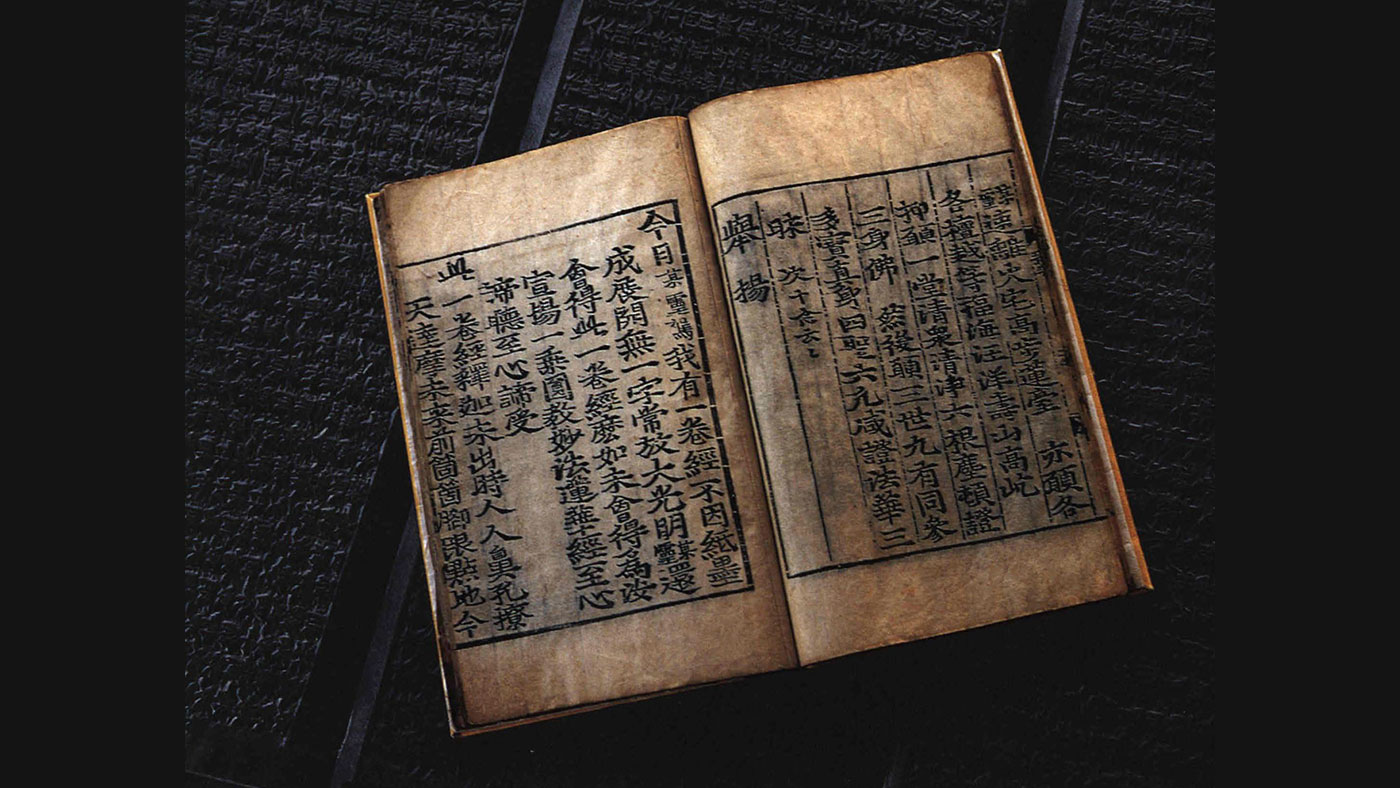 靈遠離火宅高步蓮堂 亦願各
各檀越等福海汪洋壽山高屹
抑願一堂清衆清淨六根塵頓證
三身佛 然後願三世九有同參
多寶直節四聖六凡咸證法華三
昧 次十念云々
擧揚
今日某靈駕我有一卷經不因紙墨
成展開無一字常放大光明某靈還
會得此一卷經麽如未會得爲汝
宣揚一乘圓教妙法蓮華經至心
諦聽至心諦受
此一卷經釋迦未出時人人鼻孔撩
天達摩未來前箇箇脚跟點地今